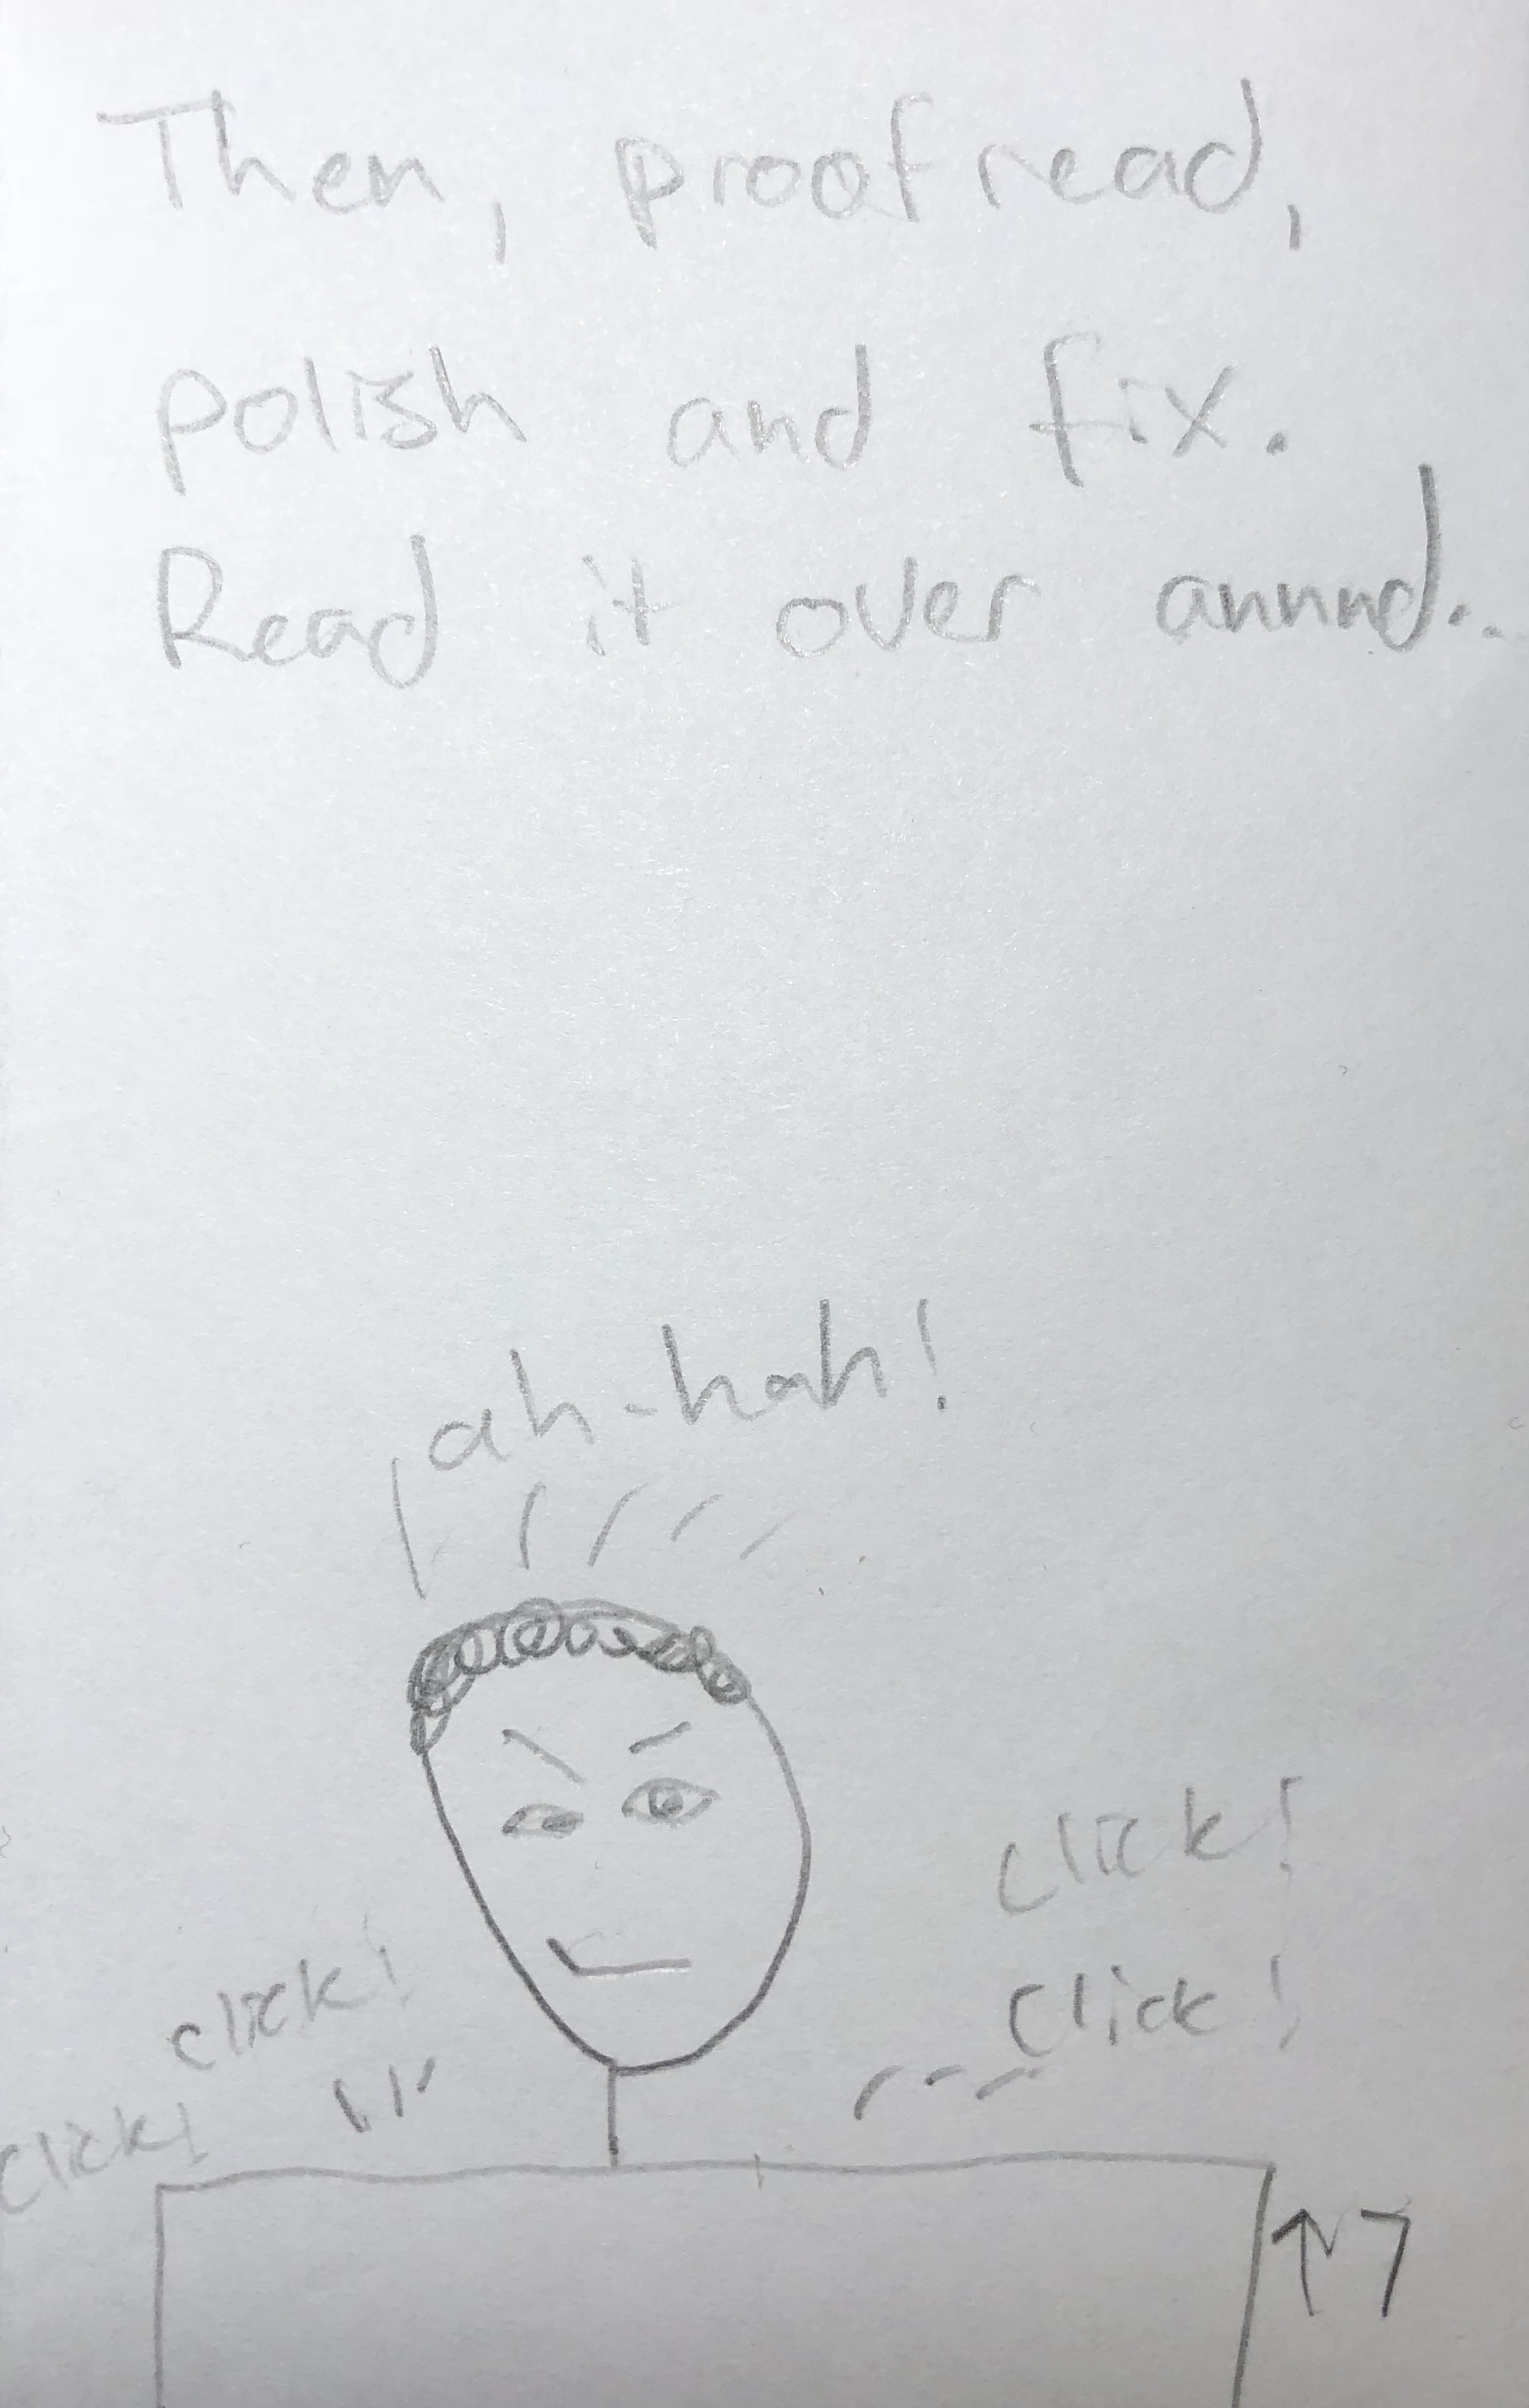 Then, proofread,
polish and fix.
Read it over annnd...
ah-hah!
click!
click!
click!
click!
↑7